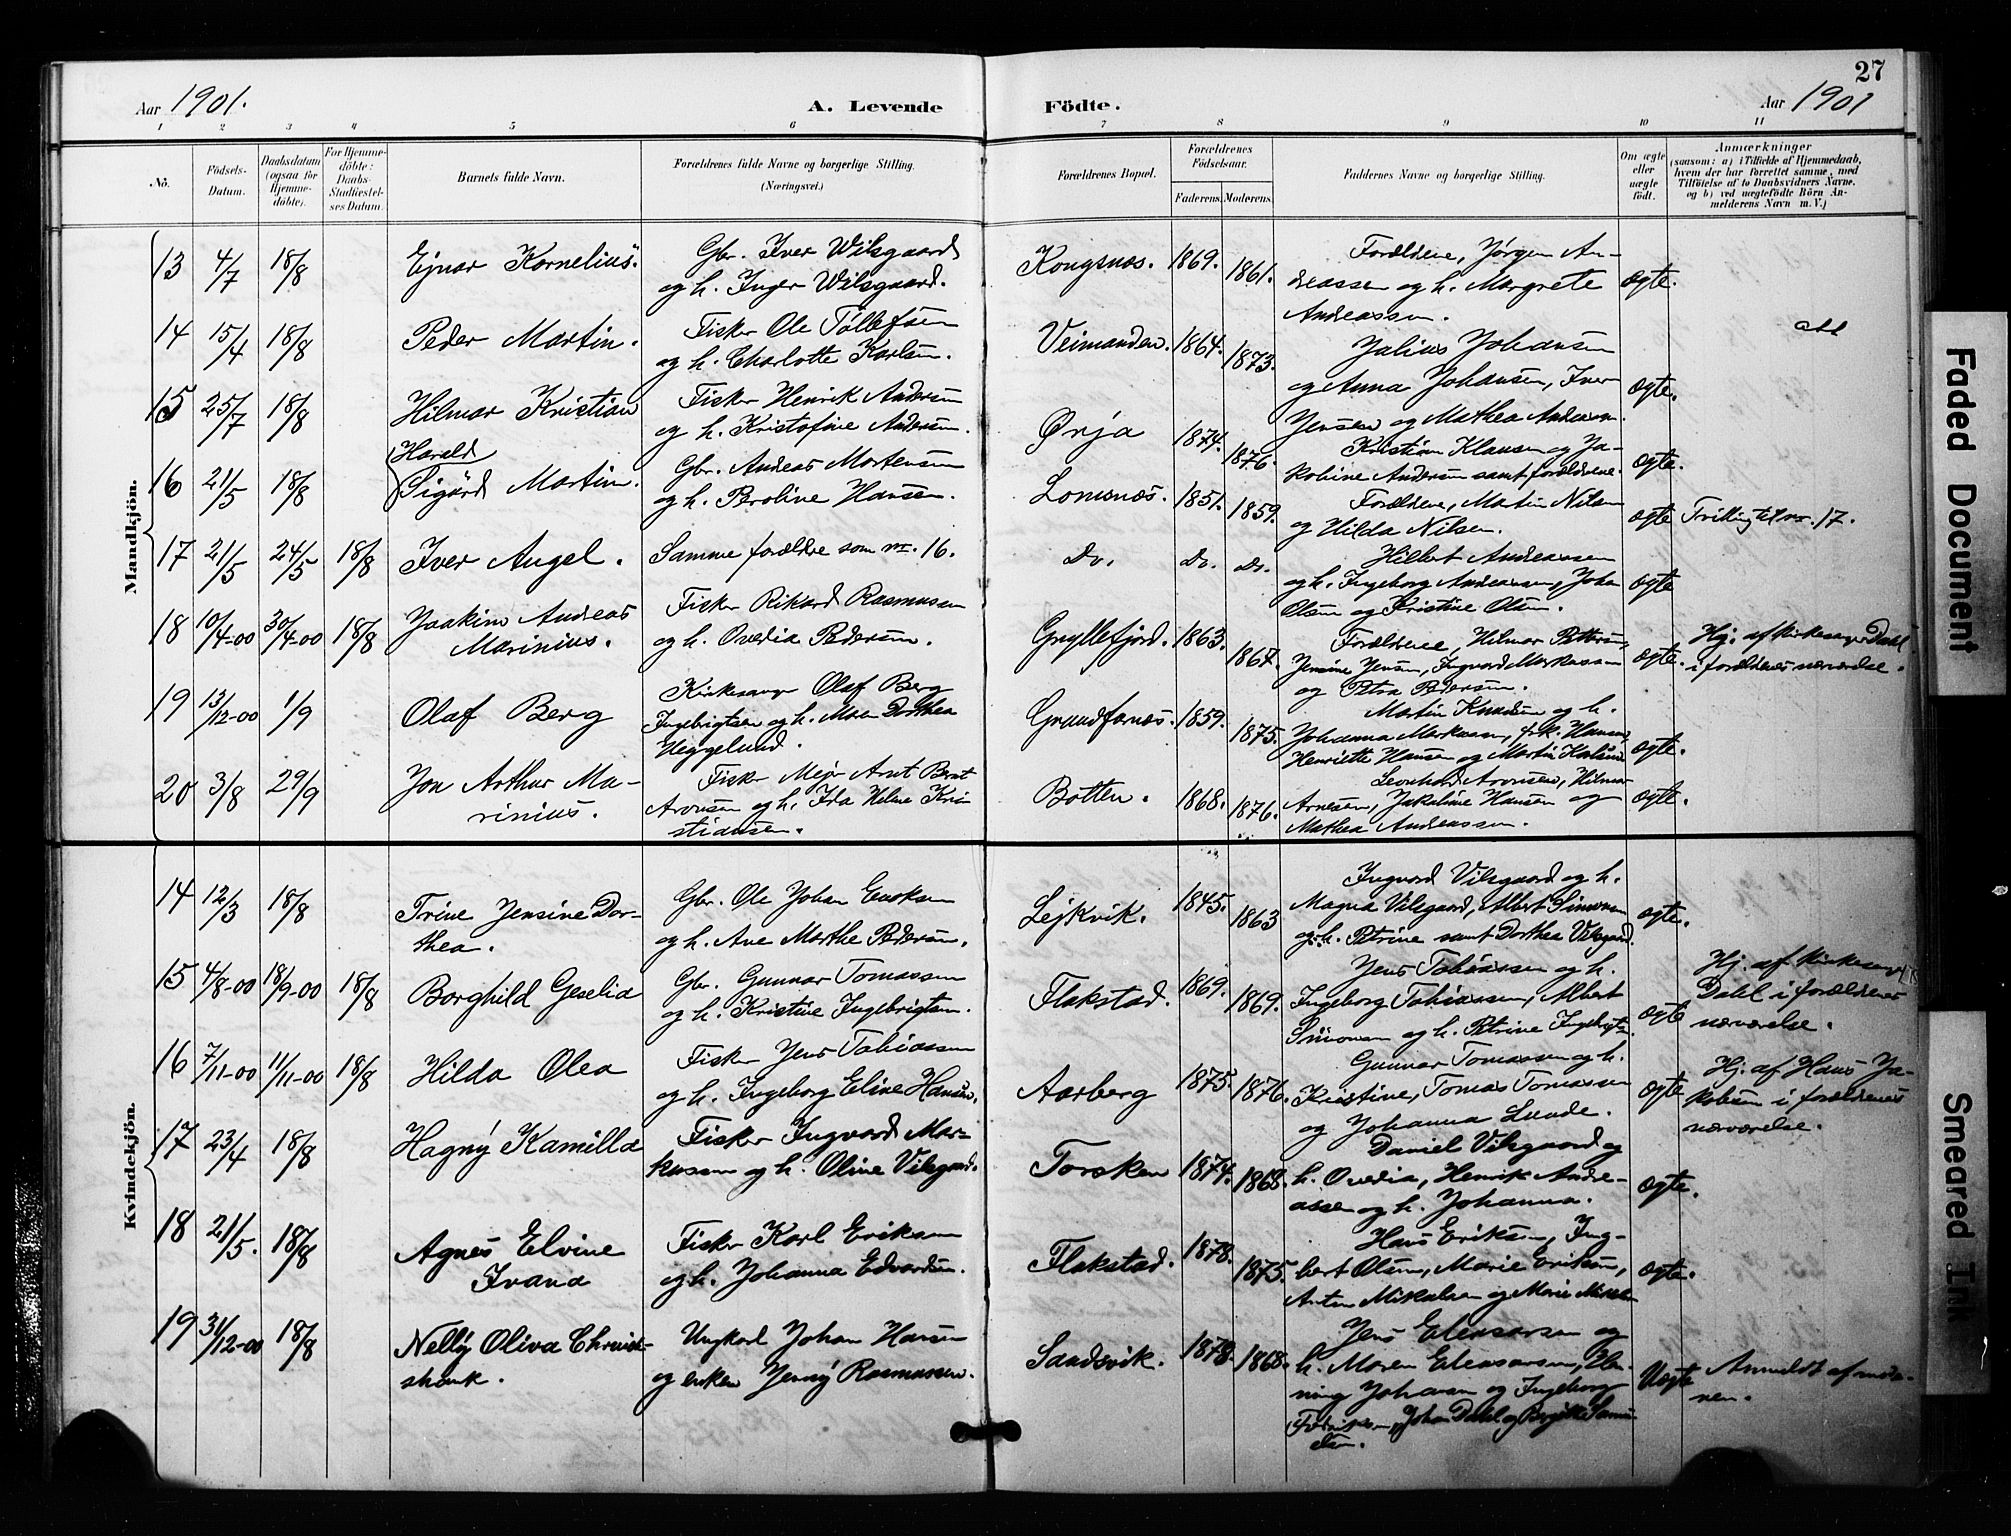 27
Aar 1901. A. Levende Födte. Aar 1901
1 2 3 4 5 6 7 8 9 10 11
No. Födsels-Datum. Daabsdatum (ogsaa for Hjemmedöbte). For Hjemmedöbte: Daabs-Stadfæstelses Datum. Barnets fulde Navn. Forældrenes fulde Navne og borgerlige Stilling. (Næringsvei.) Forældrenes Bopæl. Forældrenes Födselsaar. Faderens. Moderens. Faddernes Navne og borgerlige Stilling. Om ægte eller uægte födt. Anmærkninger
(saasom: a) i Tilfælde af Hjemmedaab, hvem der har forrettet samme, med Tilföielse af to Daabsvidners Navne, og b) ved uægtefödte Börn Anmelderens Navn m. V.)
Mandkjön.
13 4/7 18/8 Ejnar Kornelius. Gbr. Iver Wilsgaard
og h. Inger Wilsgaard. Kongsnes. 1869. 1861. Forældrene, Jørgen An-
dreassen og h. Margrete
Andreassen. ægte.
14 15/4 18/8 Peder Martin. Fisker Ole Tollefsen
og h. Charlotte Karlsen. Veimanden. 1864. 1873. Julius Johansen
og Anna Johansen, Iver
Jensen og Mathea Andersen. ægte.
15 25/7 18/8 Hilmar Kristian Fisker Henrik Andersen
og h. Kristofine Andersen. Ørja 1874. 1876. Kristian Klausen og Ja-
kobine Andersen samt forældrene. ægte.
16 21/5 18/8 Harald
Sigurd Martin. Gbr. Andreas Mortensen
og h. Peroline Hansen. Lomsnes. 1851. 1859. Forældrene, Martin Nilsen
og Hilda Nilsen. ægte Tvilling til nr. 17.
17 21/5 24/5 18/8 Iver Angel. Samme forældre som nr. 16. Do. Do. Do. Hilbert Andreassen
og h. Ingeborg Andreassen, Johan
Olsen og Kristine Olsen. ægte
18 10/4-00 30/4-00 18/8 Joakim Andreas
Marinius. Fisker Rikard Rasmussen
og h. Ovedia Pedersen. Gryllefjord. 1863. 1867. Forældrene, Hilmar Pettersen,
Jensine Jensen, Ingvard Markussen
og Petra Pedersen. ægte. Hj. af kirkesanger Dahl
i forældrenes nærværelse.
19 13/12-00 1/9 Olaf Berg Kirkesanger Olaf Berg
Ingebrigtsen og h. Maren Dorthea
Heggelund. Grundfarnes. 1859. 1875. Martin Knudsen og h.
Johanna Markussen, frk. Hansen,
Henriette Hansen og Martin Karlsen ægte.
20 3/8 29/9 Jon Arthur Ma-
rinius. Fisker Mejer Arnt Bernt
Aronsen og h. Ida Helene Kri-
stiansen. Botten. 1868. 1876. Leonhard Aronsen, Hilmar
Arnesen, Jakobine Hansen og
Mathea Andreassen. ægte.
Kvindekjön.
14 12/3 18/8 Trine Jensine Dor-
thea. Gbr. Ole Johan Enoksen
og h. Ane Marthe Pedersen. Lejkvik. 1845. 1863 Ingvard Vilsgaard og h.
Magna Vilsgaard, Albert Simonsen
og h. Petrine samt Dorthea Vilsgaard. ægte.
15 4/8-00 18/9-00 18/8 Borghild Geselia Gbr. Gunnar Tomassen
og h. Kristine Ingebrigtsen. Flakstad. 1869. 1869. Jens Tobiassen og h.
Ingeborg Tobiassen, Albert
Simonsen og h. Petrine Ingebrigts. ægte Hj. af kirkesanger
Dahl i forældrenes
nærværelse.
16 7/11-00 11/11-00 18/8 Hilda Olea Fisker Jens Tobiassen
og h. Ingeborg Eline Hansen. Aarberg 1875. 1876. Gunnar Tomassen og h.
Kristine, Tomas Tomassen
og Johanna Lunde. ægte Hj. af Hans Ja-
kobsen i forældrenes
nærværelse.
17 23/4 18/8 Hagny Kamilla Fisker Ingvard Mar-
kussen og h. Oline Vilsgaard. Torsken 1874. 1868. Daniel Vilsgaard og
h. Ovedia, Henrik Andre-
assen og h. Johanna. ægte.
18 21/5. 18/8 Agnes Elvine
Ivana Fisker Karl Eriksen
og h. Johanna Edvardsen. Flakstad. 1878. 1875. Hans Eriksen, Ing-
bert Olsen, Marie Eriksen,
Anton Mikalsen og Marie Mikalsen ægte.
19 31/12-00 18/8 Nelly Oliva
shank. Ungkarl Johan Hansen
og enken Jenny Rasmussen. Sandsvik. 1878. 1868. Jens Eleasarsen og
h. Maren Eleasarsen, Hen-
ning Johansen og Ingeborg
Fredriksen, Johan Dahl og Uægte Anmeldt af mode-
ren.
Faded Document
Smeared Ink